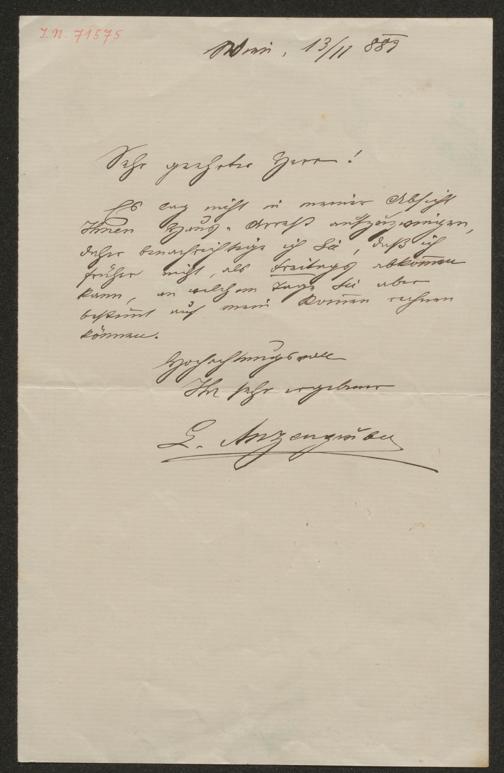 I.N. 71575
Wien, 13/11 889
Sehr geehrter Herr!
Es lag nicht in meiner Absicht
Ihnen Haus-Arrest aufzuzwingen,
daher benachrichtige ich Sie, daß ich
früher nicht, als Freitags abkommen
kann, an welchem Tage Sie aber
bestimmt auf mein Kommen rechnen
können.
Hochachtungsvoll
Ihr sehr ergebener
L. Anzengruber